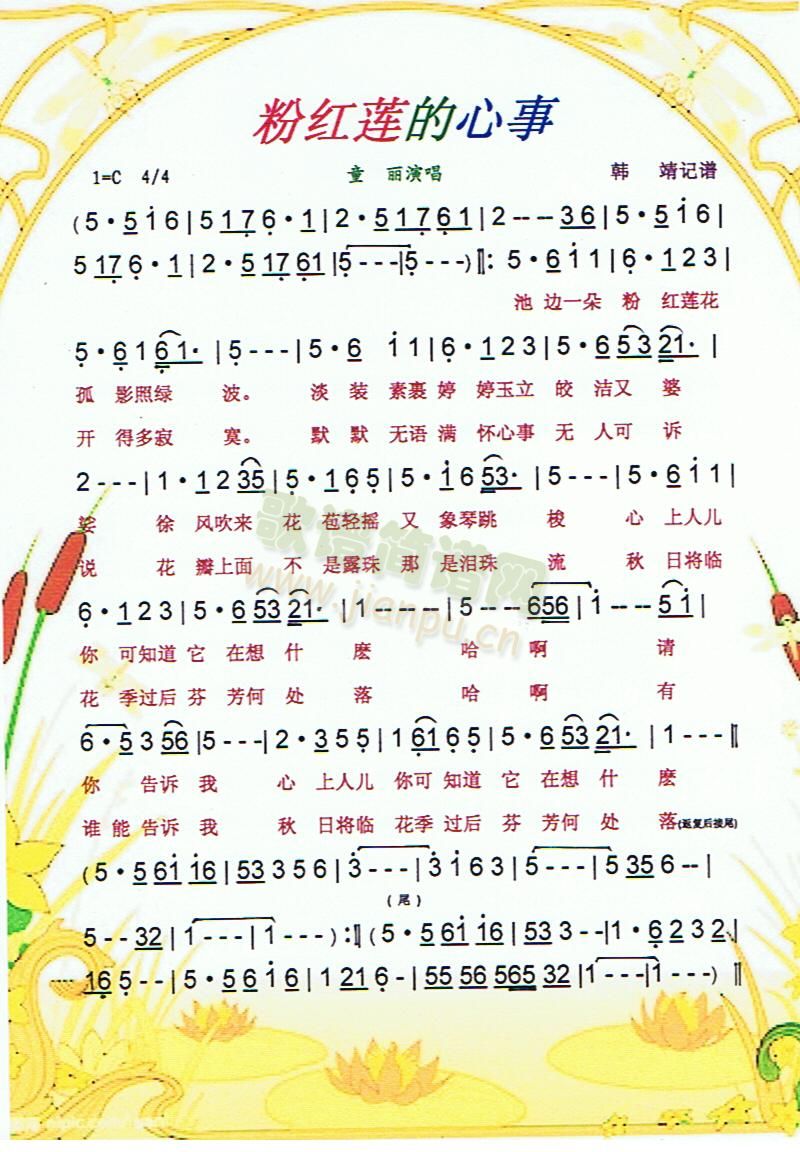 粉红莲的心事
1=C 4/4 童 丽演唱 韩 靖记谱
(5·5 i 6|5 1 7 6·1|2·5 1 7 6 1|2 -- -- 3 6|5·5 i 6|
5 17 6·1|2·5 17 61|5 - - -|5 - - -)‖: 5·6 i 1|6·1 2 3|
池 边一朵 粉 红莲花
5·6 1 6 1·|5 - - -|5·6 i 1|6·1 2 3|5·6 53 21·|
孤 影照绿 波。 淡 装 素裹 婷 婷玉立 皎 洁又 婆
开 得多寂 寞。 默 默 无语 满 怀心事 无 人可 诉
2 - - -|1·1 2 35|5·1 6 5|5·i 6 53·|5 - - -|5·6 i 1|
娑 徐 风吹来 花 苞轻摇 又 象琴跳 梭 心 上人儿
说 花 瓣上面 不 是露珠 那 是泪珠 流 秋 日将临
歌谱简谱网
www.jianpu.cn
6·1 2 3|5·6 53 21·|1 -- -- --|5 -- -- 656|i -- -- 5 i|
你 可知道 它 在想 什 麽 哈 啊 请
花 季过后 芬 芳何 处 落 哈 啊 有
6·5 3 56|5 - - -|2·3 5 5|1 61 6 5|5·6 53 21·|1 - - -‖
你 告诉 我 心 上人儿 你可 知道 它 在想 什 麽
谁 能 告诉 我 秋 日将临 花季 过后 芬 芳何 处 落(返复后接尾)
(5·5 6i i6|53 3 5 6|3 - - -|3 i 6 3|5 - - -|5 35 6 --|
(尾)
5 - - 32|1 - - -|1 - - -):‖(5·5 6i i6|53 3 - -|1·6 2 3 2|
16 5 - -|5·5 6 i 6|1 21 6 -|55 56 565 32|1 - - -|1 - - -)‖